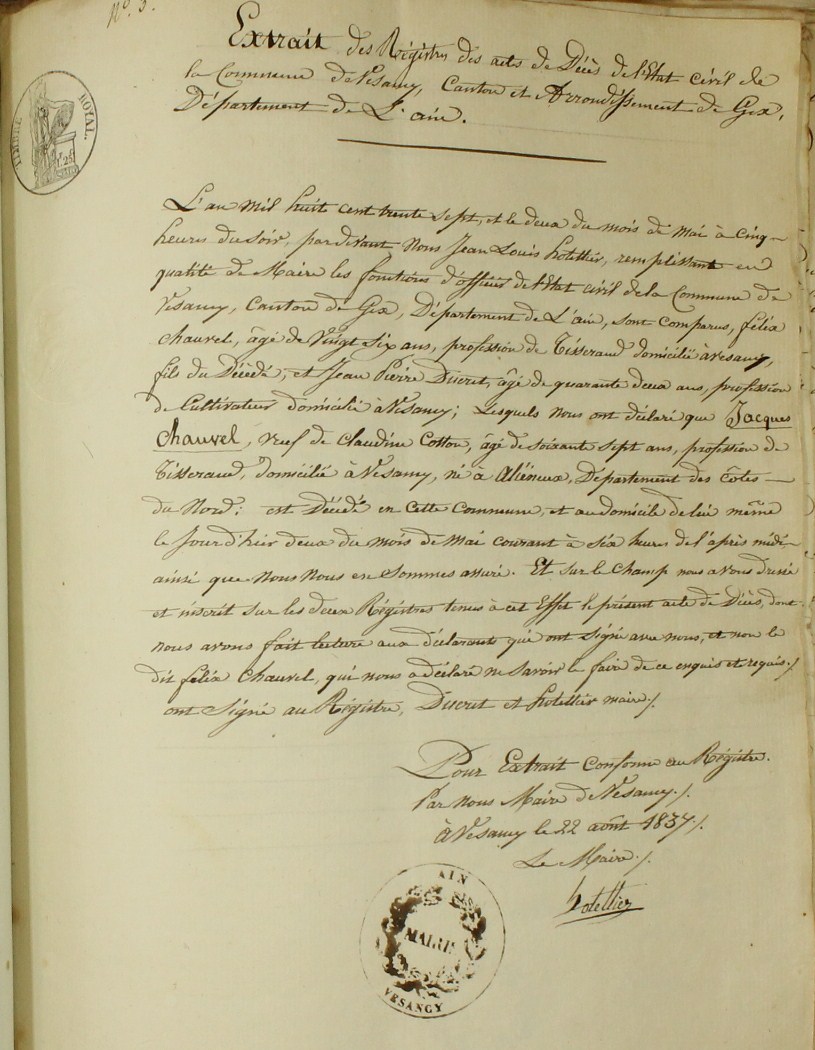 N.º 3.
Extrait des Régistres des actes de Décès de l'Etat civil de
la Commune de Vesancy, Canton et Arrondissement de Gex,
Département de L'ain.
TIMBRE ROYAL.
L'an mil huit cent trente sept, et le deux du mois de mai à cinq
heures du soir, pardevant Nous Jean Louis hotellier, remplissant en
qualité de Maire les fonctions d'officier de l'Etat civil de la Commune de
Vesancy, Canton de Gex, Département de L'ain, sont comparus, félix
chauvel, âgé de vingt six ans, profession de Tisserand domicilié à Vesancy,
fils du Décédé; et Jean Pierre Ducret, âgé de quarante deux ans, profession
de Cultivateur domicilié à Vesancy; Lesquels nous ont déclaré que Jacques
Chauvel, veuf de Claudine Cotton, âgé de soixante sept ans, profession de
Tisserand, domicilié à Vesancy, né à Alléneux, Département des côtes
du Nord: est Décédé en cette Commune, et au domicile de lui même
le Jour d'hier deux du mois de Mai courant à six heures de l'après midi
ainsi que Nous Nous en Sommes assuré. Et sur le Champ nous avons dressé
et inscrit sur les deux Régistres tenus à cet Effet le présent acte de Décès, dont
nous avons fait lecture aux déclarants qui ont signé avec nous, et non le
dit félix Chauvel, qui nous a déclaré ne Savoir le faire de ce enquis et requis./
ont Signé au Régistre, Ducret et hotellier maire./
Pour Extrait conforme au Régistre.
Par nous Maire de Vesancy./.
à Vesancy le 22 août 1837./.
Le Maire./.
hotellier
AIN
MAIRIE
VESANCY